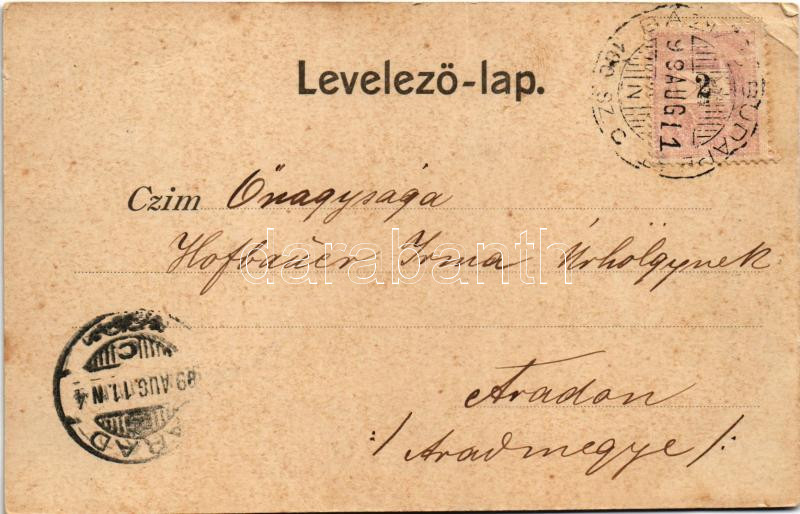 Levelező-lap.
2
BUDAPE
98 AUG 11
N
Czim Őnagysága
Hofbauer Irma Úrhölgynek
darabanth
Aradon
:/ Aradmegye /:
C
99 AUG. 11. N 4
ARAD